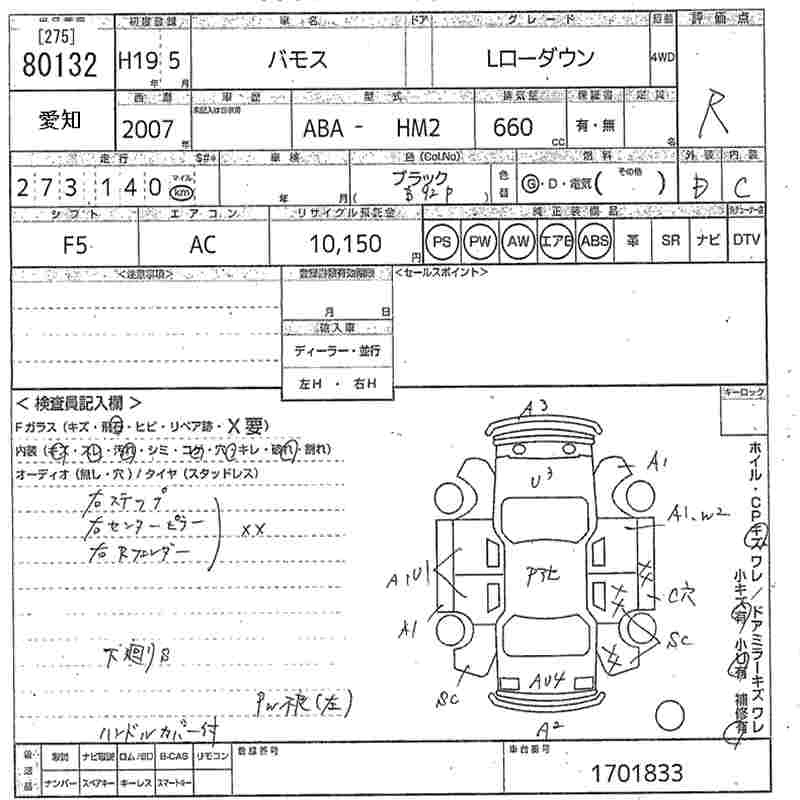 初度登録 車名 ドア グレード 評価点
[275]
80132 H19年 5月 バモス Lローダウン 4WD R
愛知 西暦 車歴 型式 排気量 保証書 定員
2007年 ABA - HM2 660cc 有・無 名
走行 車検 色(Col.No) 燃料 外装 内装
273140 マイル km 年 月 ブラック ( B92P ) 色替 G・D・電気( その他 ) D C
シフト エアコン リサイクル預託金 純正装備品
F5 AC 10,150円 PS PW AW エアB ABS 革 SR ナビ DTV
<注意事項> 登録書類有効期限 <セールスポイント>
月 日
輸入車
ディーラー・並行
左H ・ 右H
<検査員記入欄> キーロック
Fガラス (キズ・飛石・ヒビ・リペア跡・X要)
内装 (キズ・スレ・汚れ・シミ・コゲ・穴・キレ・破れ・割れ)
オーディオ (無し・穴) / タイヤ (スタッドレス)
右ステップ
右センターピラー XX
右Rフェンダー
下廻りS
PW不良(左)
ハンドルカバー付
A3
U3
A1
A1.W2
A1U1
C穴
A1
SC
SC
AU4
A2
ホイル・CPキズワレ/ドアミラーキズワレ
小キズ有/小U有 補修有
後送品 取説 ナビ取説 ロム/SD B-CAS リモコン 登録番号 車台番号
ナンバー スペアキー キーレス スマートキー 1701833